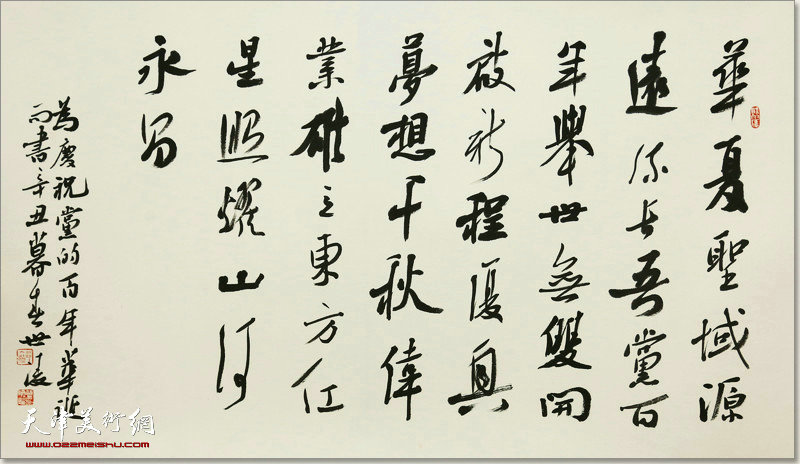 華夏聖域源
遠流長吾黨百
年舉世無雙開
啟新程復興
夢想千秋偉
業雄立東方紅
星照耀山河
永
為慶祝黨的百年華誕
而書辛丑暮春世
天津美術網
www.022meishu.com